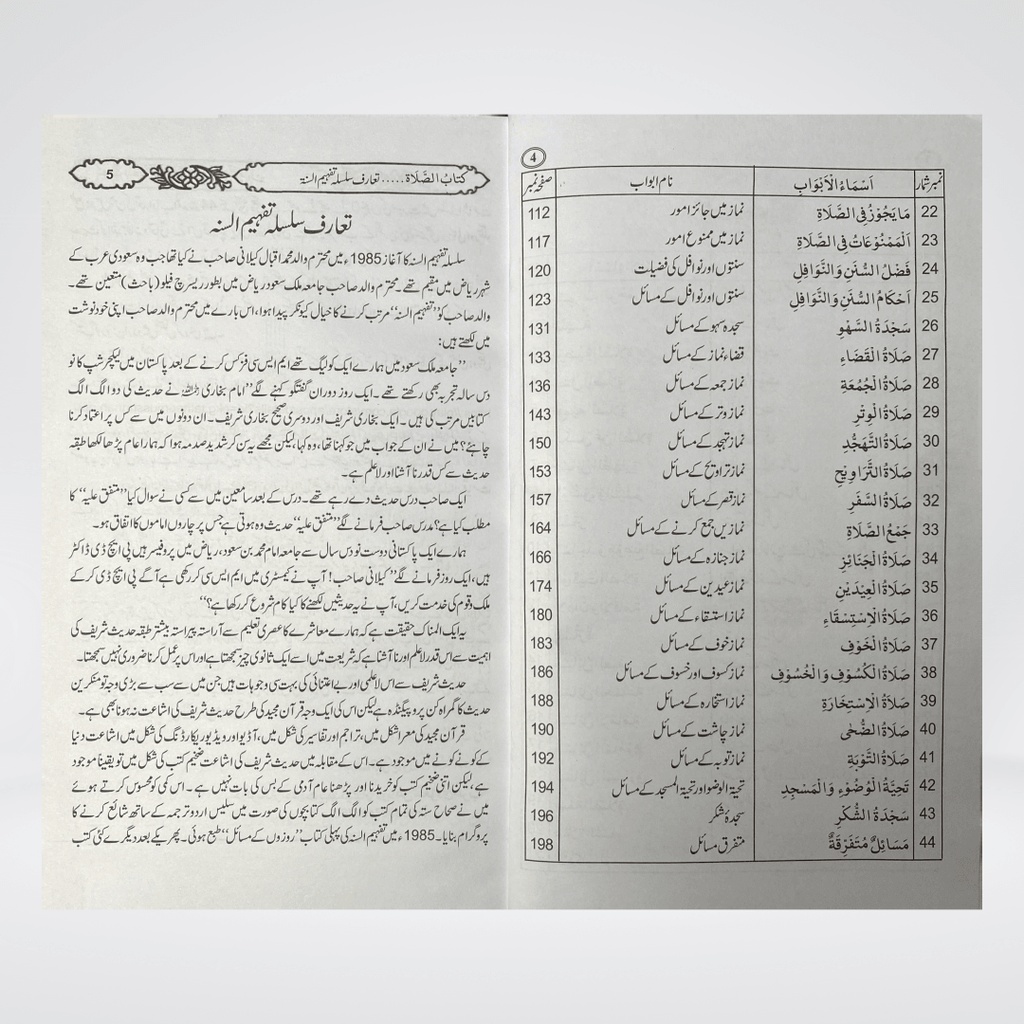 4
نمبر شمار اَسْمَاءُ الْاَبْوَابِ نام ابواب صفحہ نمبر
22 مَا يَجُوْزُ فِى الصَّلَاةِ نماز میں جائز امور 112
23 اَلْمَمْنُوْعَاتُ فِى الصَّلَاةِ نماز میں ممنوع امور 117
24 فَضْلُ السُّنَنِ وَالنَّوَافِلِ سنتوں اور نوافل کی فضیلت 120
25 اَحْكَامُ السُّنَنِ وَالنَّوَافِلِ سنتوں اور نوافل کے مسائل 123
26 سَجْدَةُ السَّهْوِ سجدہ سہو کے مسائل 131
27 صَلَاةُ الْقَضَاءِ قضاء نماز کے مسائل 133
28 صَلَاةُ الْجُمُعَةِ نماز جمعہ کے مسائل 136
29 صَلَاةُ الْوِتْرِ نماز وتر کے مسائل 143
30 صَلَاةُ التَّهَجُّدِ نماز تہجد کے مسائل 150
31 صَلَاةُ التَّرَاوِيْحِ نماز تراویح کے مسائل 153
32 صَلَاةُ السَّفَرِ نماز قصر کے مسائل 157
33 جَمْعُ الصَّلَاةِ نمازیں جمع کرنے کے مسائل 164
34 صَلَاةُ الْجَنَائِزِ نماز جنازہ کے مسائل 166
35 صَلَاةُ الْعِيْدَيْنِ نماز عیدین کے مسائل 174
36 صَلَاةُ الْاِسْتِسْقَاءِ نماز استسقاء کے مسائل 180
37 صَلَاةُ الْخَوْفِ نماز خوف کے مسائل 183
38 صَلَاةُ الْكُسُوْفِ وَالْخُسُوْفِ نماز کسوف اور خسوف کے مسائل 186
39 صَلَاةُ الْاِسْتِخَارَةِ نماز استخارہ کے مسائل 188
40 صَلَاةُ الضُّحٰى نماز چاشت کے مسائل 190
41 صَلَاةُ التَّوْبَةِ نماز توبہ کے مسائل 192
42 تَحِيَّةُ الْوُضُوْءِ وَالْمَسْجِدِ تحیۃ الوضو اور تحیۃ المسجد کے مسائل 194
43 سَجْدَةُ الشُّكْرِ سجدۂ شکر 196
44 مَسَائِلُ مُتَفَرِّقَةٌ متفرق مسائل 198
کتابُ الصَّلَاۃ ..... تعارف سلسلہ تفہیم السنۃ 5
تعارف سلسلہ تفہیم السنہ
سلسلہ تفہیم السنہ کا آغاز 1985ء میں محترم والد محمد اقبال کیلانی صاحب نے کیا تھا جب وہ سعودی عرب کے
شہر ریاض میں مقیم تھے۔ محترم والد صاحب جامعہ ملک سعود ریاض میں بطور ریسرچ فیلو (باحث) متعین تھے۔
والد صاحب کو ”تفہیم السنہ“ مرتب کرنے کا خیال کیونکر پیدا ہوا، اس بارے میں محترم والد صاحب اپنی خودنوشت
میں لکھتے ہیں:
”جامعہ ملک سعود میں ہمارے ایک کولیگ تھے ایم ایس سی فزکس کرنے کے بعد پاکستان میں لیکچرشپ کا نو
دس سالہ تجربہ بھی رکھتے تھے۔ ایک روز دوران گفتگو کہنے لگے ”امام بخاری رحمہ اللہ نے حدیث کی دو الگ الگ
کتابیں مرتب کی ہیں۔ ایک بخاری شریف اور دوسری صحیح بخاری شریف۔ ان دونوں میں سے کس پر اعتماد کرنا
چاہئے؟ میں نے ان کے جواب میں جو کہنا تھا، وہ کہا، لیکن مجھے یہ سن کر شدید صدمہ ہوا کہ ہمارا عام پڑھا لکھا طبقہ
حدیث سے کس قدر نا آشنا اور لاعلم ہے۔
ایک صاحب درس حدیث دے رہے تھے۔ درس کے بعد سامعین میں سے کسی نے سوال کیا ”متفق علیہ“ کا
مطلب کیا ہے؟ مدرس صاحب فرمانے لگے ”متفق علیہ“ حدیث وہ ہوتی ہے جس پر چاروں اماموں کا اتفاق ہو۔
ہمارے ایک پاکستانی دوست نو دس سال سے جامعہ امام محمد بن سعود، ریاض میں پروفیسر ہیں پی ایچ ڈی ڈاکٹر
ہیں، ایک روز فرمانے لگے ”کیلانی صاحب! آپ نے کیمسٹری میں ایم ایس سی کر رکھی ہے آگے پی ایچ ڈی کر کے
ملک و قوم کی خدمت کریں، آپ نے یہ حدیثیں لکھنے کا کیا کام شروع کر رکھا ہے؟“
یہ ایک المناک حقیقت ہے کہ ہمارے معاشرے کا عصری تعلیم سے آراستہ پیراستہ بیشتر طبقہ حدیث شریف کی
اہمیت سے اس قدر لاعلم اور نا آشنا ہے کہ شریعت میں اسے ایک ثانوی چیز سمجھتا ہے اور اس پر عمل کرنا ضروری نہیں سمجھتا۔
حدیث شریف سے اس لاعلمی اور بے اعتنائی کی بہت سی وجوہات ہیں جن میں سے سب سے بڑی وجہ تو منکرین
حدیث کا گمراہ کن پروپیگنڈہ ہے لیکن اس کی ایک وجہ قرآن مجید کی طرح حدیث شریف کی اشاعت نہ ہونا بھی ہے۔
قرآن مجید کی معرا شکل میں، تراجم اور تفاسیر کی شکل میں، آڈیو اور ویڈیو ریکارڈنگ کی شکل میں اشاعت دنیا
کے کونے کونے میں موجود ہے۔ اس کے مقابلہ میں حدیث شریف کی اشاعت ضخیم کتب کی شکل میں تو یقیناً موجود
ہے، لیکن اتنی ضخیم کتب کو خریدنا اور پڑھنا عام آدمی کے بس کی بات نہیں ہے۔ اس کمی کو محسوس کرتے ہوئے
میں نے صحاح ستہ کی تمام کتب کو الگ الگ کتابچوں کی صورت میں سلیس اردو ترجمہ کے ساتھ شائع کرنے کا
پروگرام بنایا۔ 1985ء میں تفہیم السنہ کی پہلی کتاب ”روزوں کے مسائل“ طبع ہوئی۔ پھر یکے بعد دیگرے کئی کتب